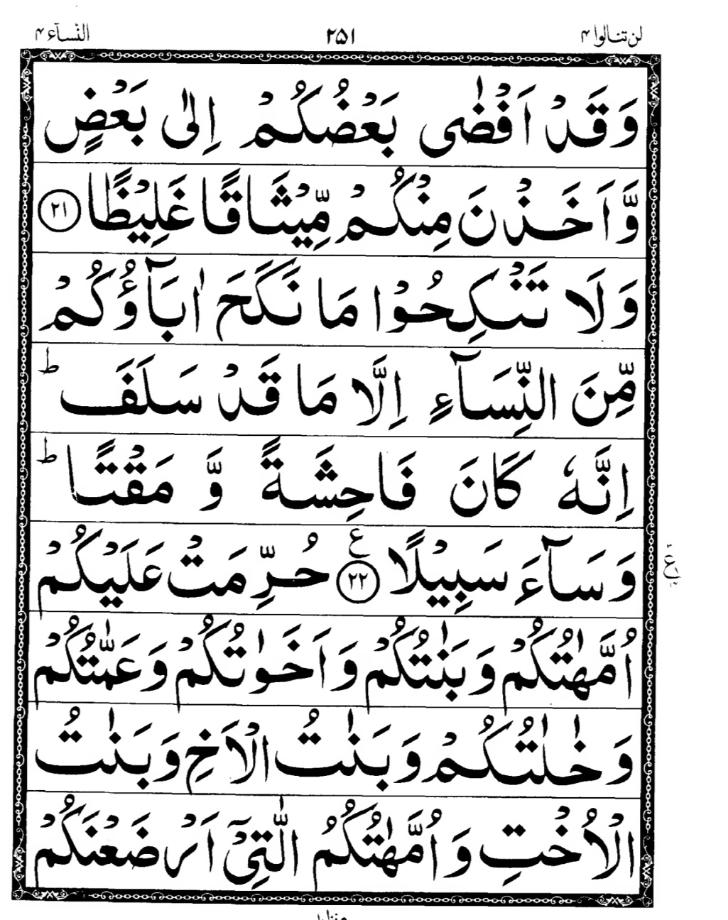 لن تنالوا ۴ ۲۵۱ النسآء ۴
وَقَدْ اَفْضٰى بَعْضُكُمْ اِلٰى بَعْضٍ
وَّاَخَذْنَ مِنْكُمْ مِّيْثَاقًا غَلِيْظًا ۲۱
وَلَا تَنْكِحُوْا مَا نَكَحَ اٰبَآؤُكُمْ
مِّنَ النِّسَآءِ اِلَّا مَا قَدْ سَلَفَ ؕ
اِنَّهٗ كَانَ فَاحِشَةً وَّ مَقْتًا ؕ
وَسَآءَ سَبِيْلًا ۲۲ ع حُرِّمَتْ عَلَيْكُمْ
اُمَّهٰتُكُمْ وَبَنٰتُكُمْ وَاَخَوٰتُكُمْ وَعَمّٰتُكُمْ
وَخٰلٰتُكُمْ وَبَنٰتُ الْاَخِ وَبَنٰتُ
الْاُخْتِ وَاُمَّهٰتُكُمُ الّٰتِيْٓ اَرْضَعْنَكُمْ